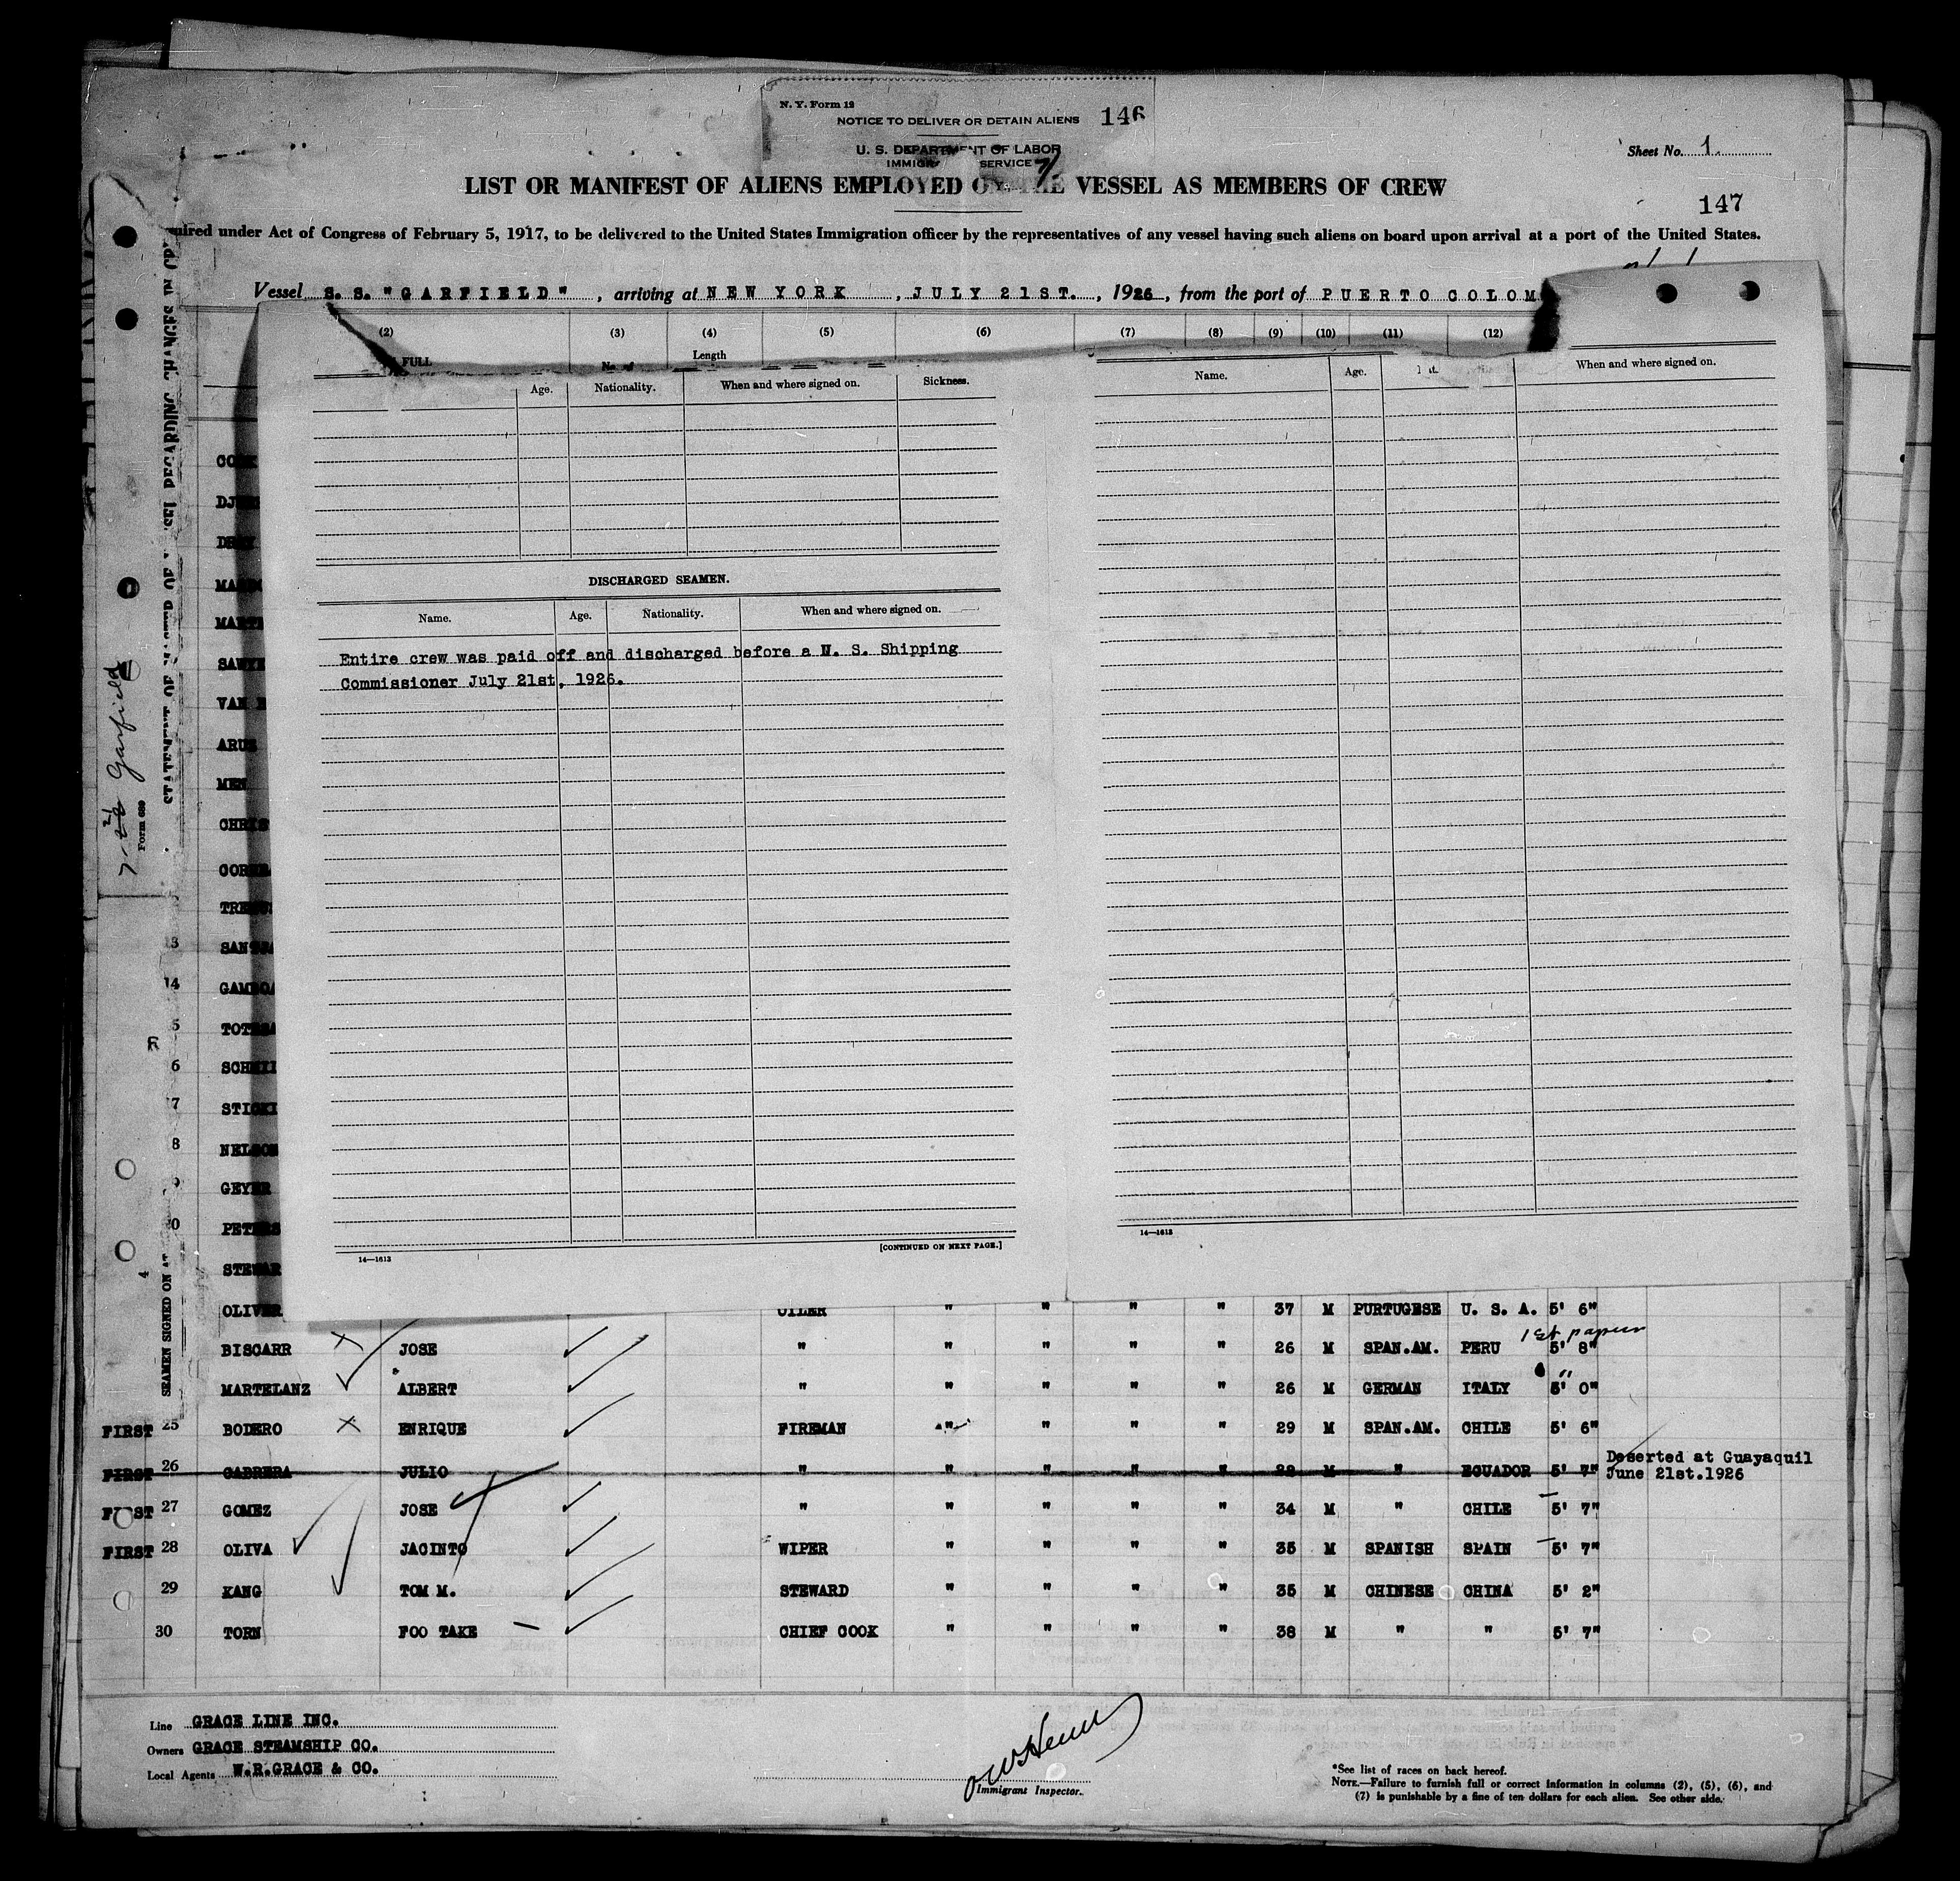 N. Y. Form 19
NOTICE TO DELIVER OR DETAIN ALIENS 146
U. S. DEPARTMENT OF LABOR
SERVICE
Sheet No. 1.
LIST OR MANIFEST OF ALIENS EMPLOYED ON THE VESSEL AS MEMBERS OF CREW
147
under Act of Congress of February 5, 1917, to be delivered to the United States Immigration officer by the representatives of any vessel having such aliens on board upon arrival at a port of the United States.
Vessel S. S. "GARFIELD", arriving at NEW YORK, JULY 21ST., 1926, from the port of PUERTO COLOM
(2) (3) (4) (5) (6) (7) (8) (9) (10) (11) (12)
FULL Length
Age. Nationality. When and where signed on. Sickness.
Name. Age. When and where signed on.
DISCHARGED SEAMEN.
Name. Age. Nationality. When and where signed on.
Entire crew was paid off and discharged before a U. S. Shipping
Commissioner July 21st, 1926.
[CONTINUED ON NEXT PAGE.]
14—1613
14—1613
Garfield
Form 689
SEAMEN SIGNED ON AT
DJ
MA
MART
SAWYE
VAN
ARUE
MEN
CHRIS
TRE
13 SANT
14 GAMBOA
5 TOT
6 SCH
7 STICKI
8 NELSON
GEYER
0 PETERS
STEWAR
OLIVER OILER " " " " 37 M PURTUGESE U. S. A. 5' 6"
1st papers
BISCARR JOSE " " " " " 26 M SPAN.AM. PERU 5' 8"
"
MARTELANZ ALBERT " " " " " 26 M GERMAN ITALY 5' 0"
FIRST 25 BODERO ENRIQUE FIREMAN " " " " 29 M SPAN.AM. CHILE 5' 6"
FIRST 26 CABRERA JULIO " " " " " 28 M " ECUADOR 5' 7" Deserted at Guayaquil
June 21st.1926
FIRST 27 GOMEZ JOSE " " " " " 34 M " CHILE 5' 7"
FIRST 28 OLIVA JACINTO WIPER " " " " 35 M SPANISH SPAIN 5' 7"
29 KANG TOM M. STEWARD " " " " 35 M CHINESE CHINA 5' 2"
30 TORN FOO TAKE CHIEF COOK " " " " 38 M " " 5' 7"
Line GRACE LINE INC.
Owners GRACE STEAMSHIP CO.
Local Agents W.R.GRACE & CO.
Immigrant Inspector.
*See list of races on back hereof.
NOTE.—Failure to furnish full or correct information in columns (2), (5), (6), and
(7) is punishable by a fine of ten dollars for each alien. See other side.